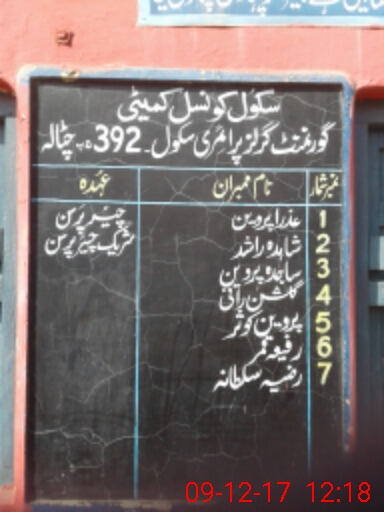 سکول کونسل کمیٹی
گورنمنٹ گرلز پرائمری سکول۔ 392 ج ب چٹالہ
نمبر شمار نام ممبران عہدہ
1 عذرا پروین چیئر پرسن
2 شاہدہ راشد شریک چیئر پرسن
3 ساجدہ پروین
4 گلشن رانی
5 پروین کوثر
6 رفیعہ قمر
7 رضیہ سلطانہ
09-12-17 12:18